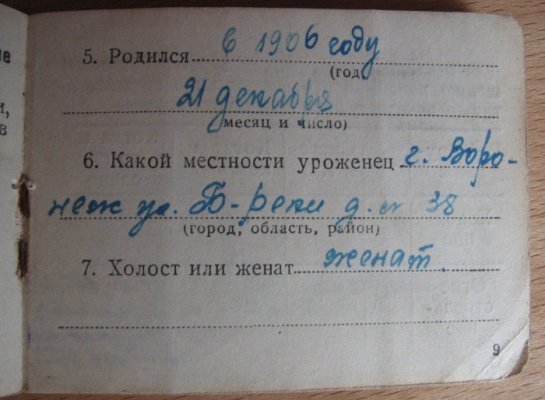 не
и,
в
5. Родился в 1906 году
(год)
21 декабря
(месяц и число)
6. Какой местности уроженец г. Воро-
неж ул. Б-реки д. № 38
(город, область, район)
7. Холост или женат женат.
9